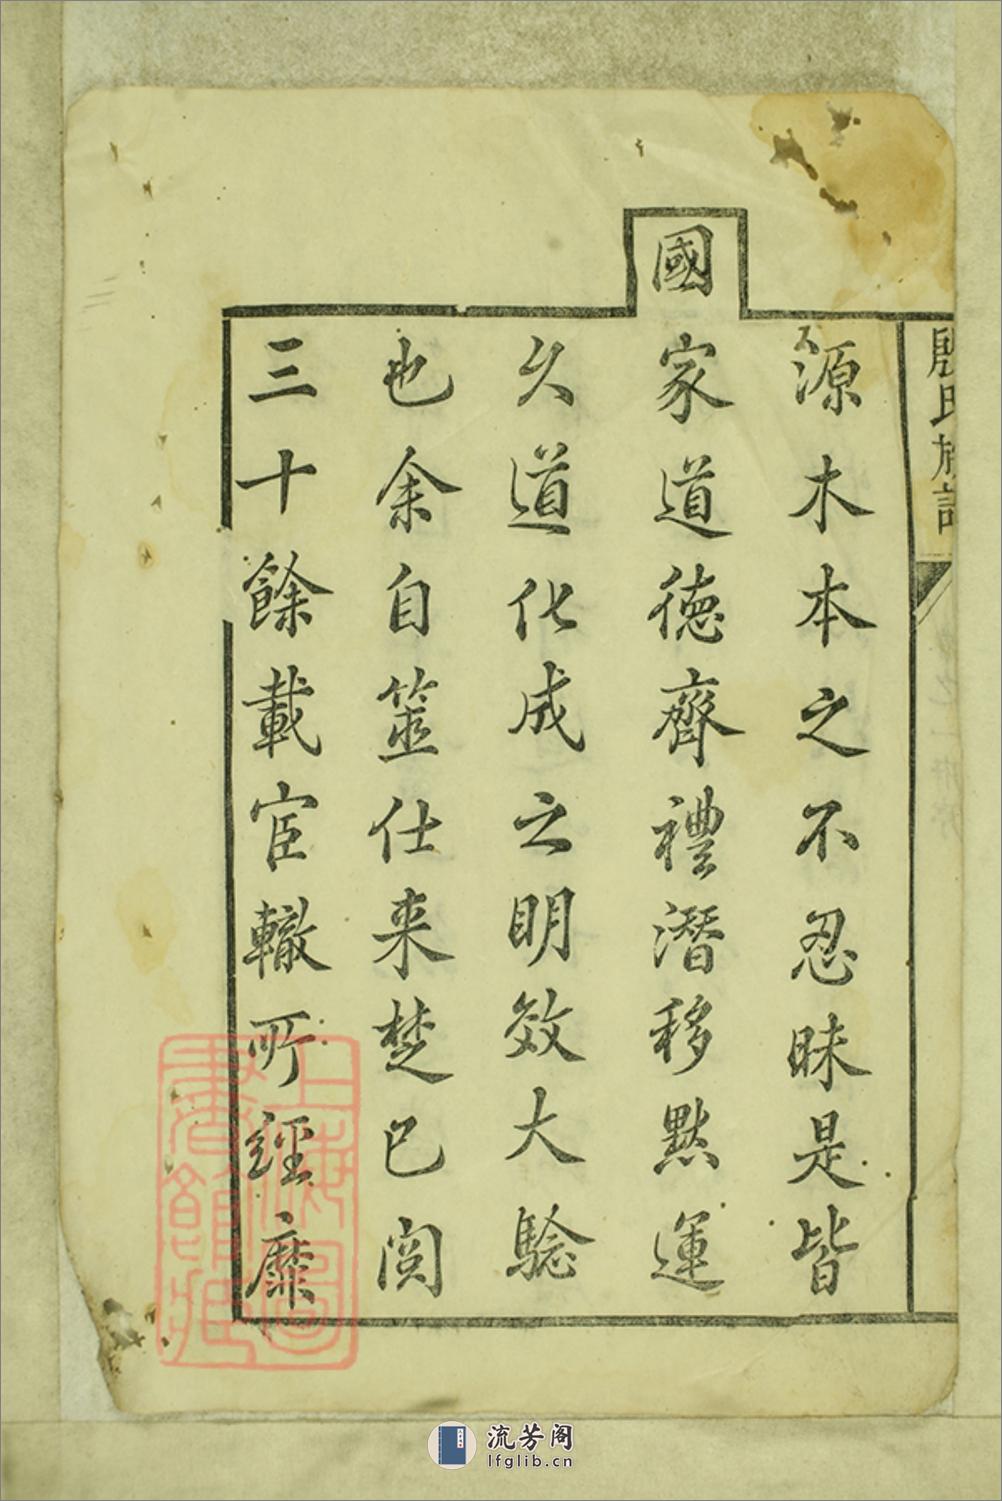 殷氏族譜
源木本之不忍昧是皆
國家道德齊禮潛移默運
久道化成之明效大驗
也余自筮仕来楚已閱
三十餘載宦轍所經靡
上海圖書館藏
流芳阁
lfglib.cn